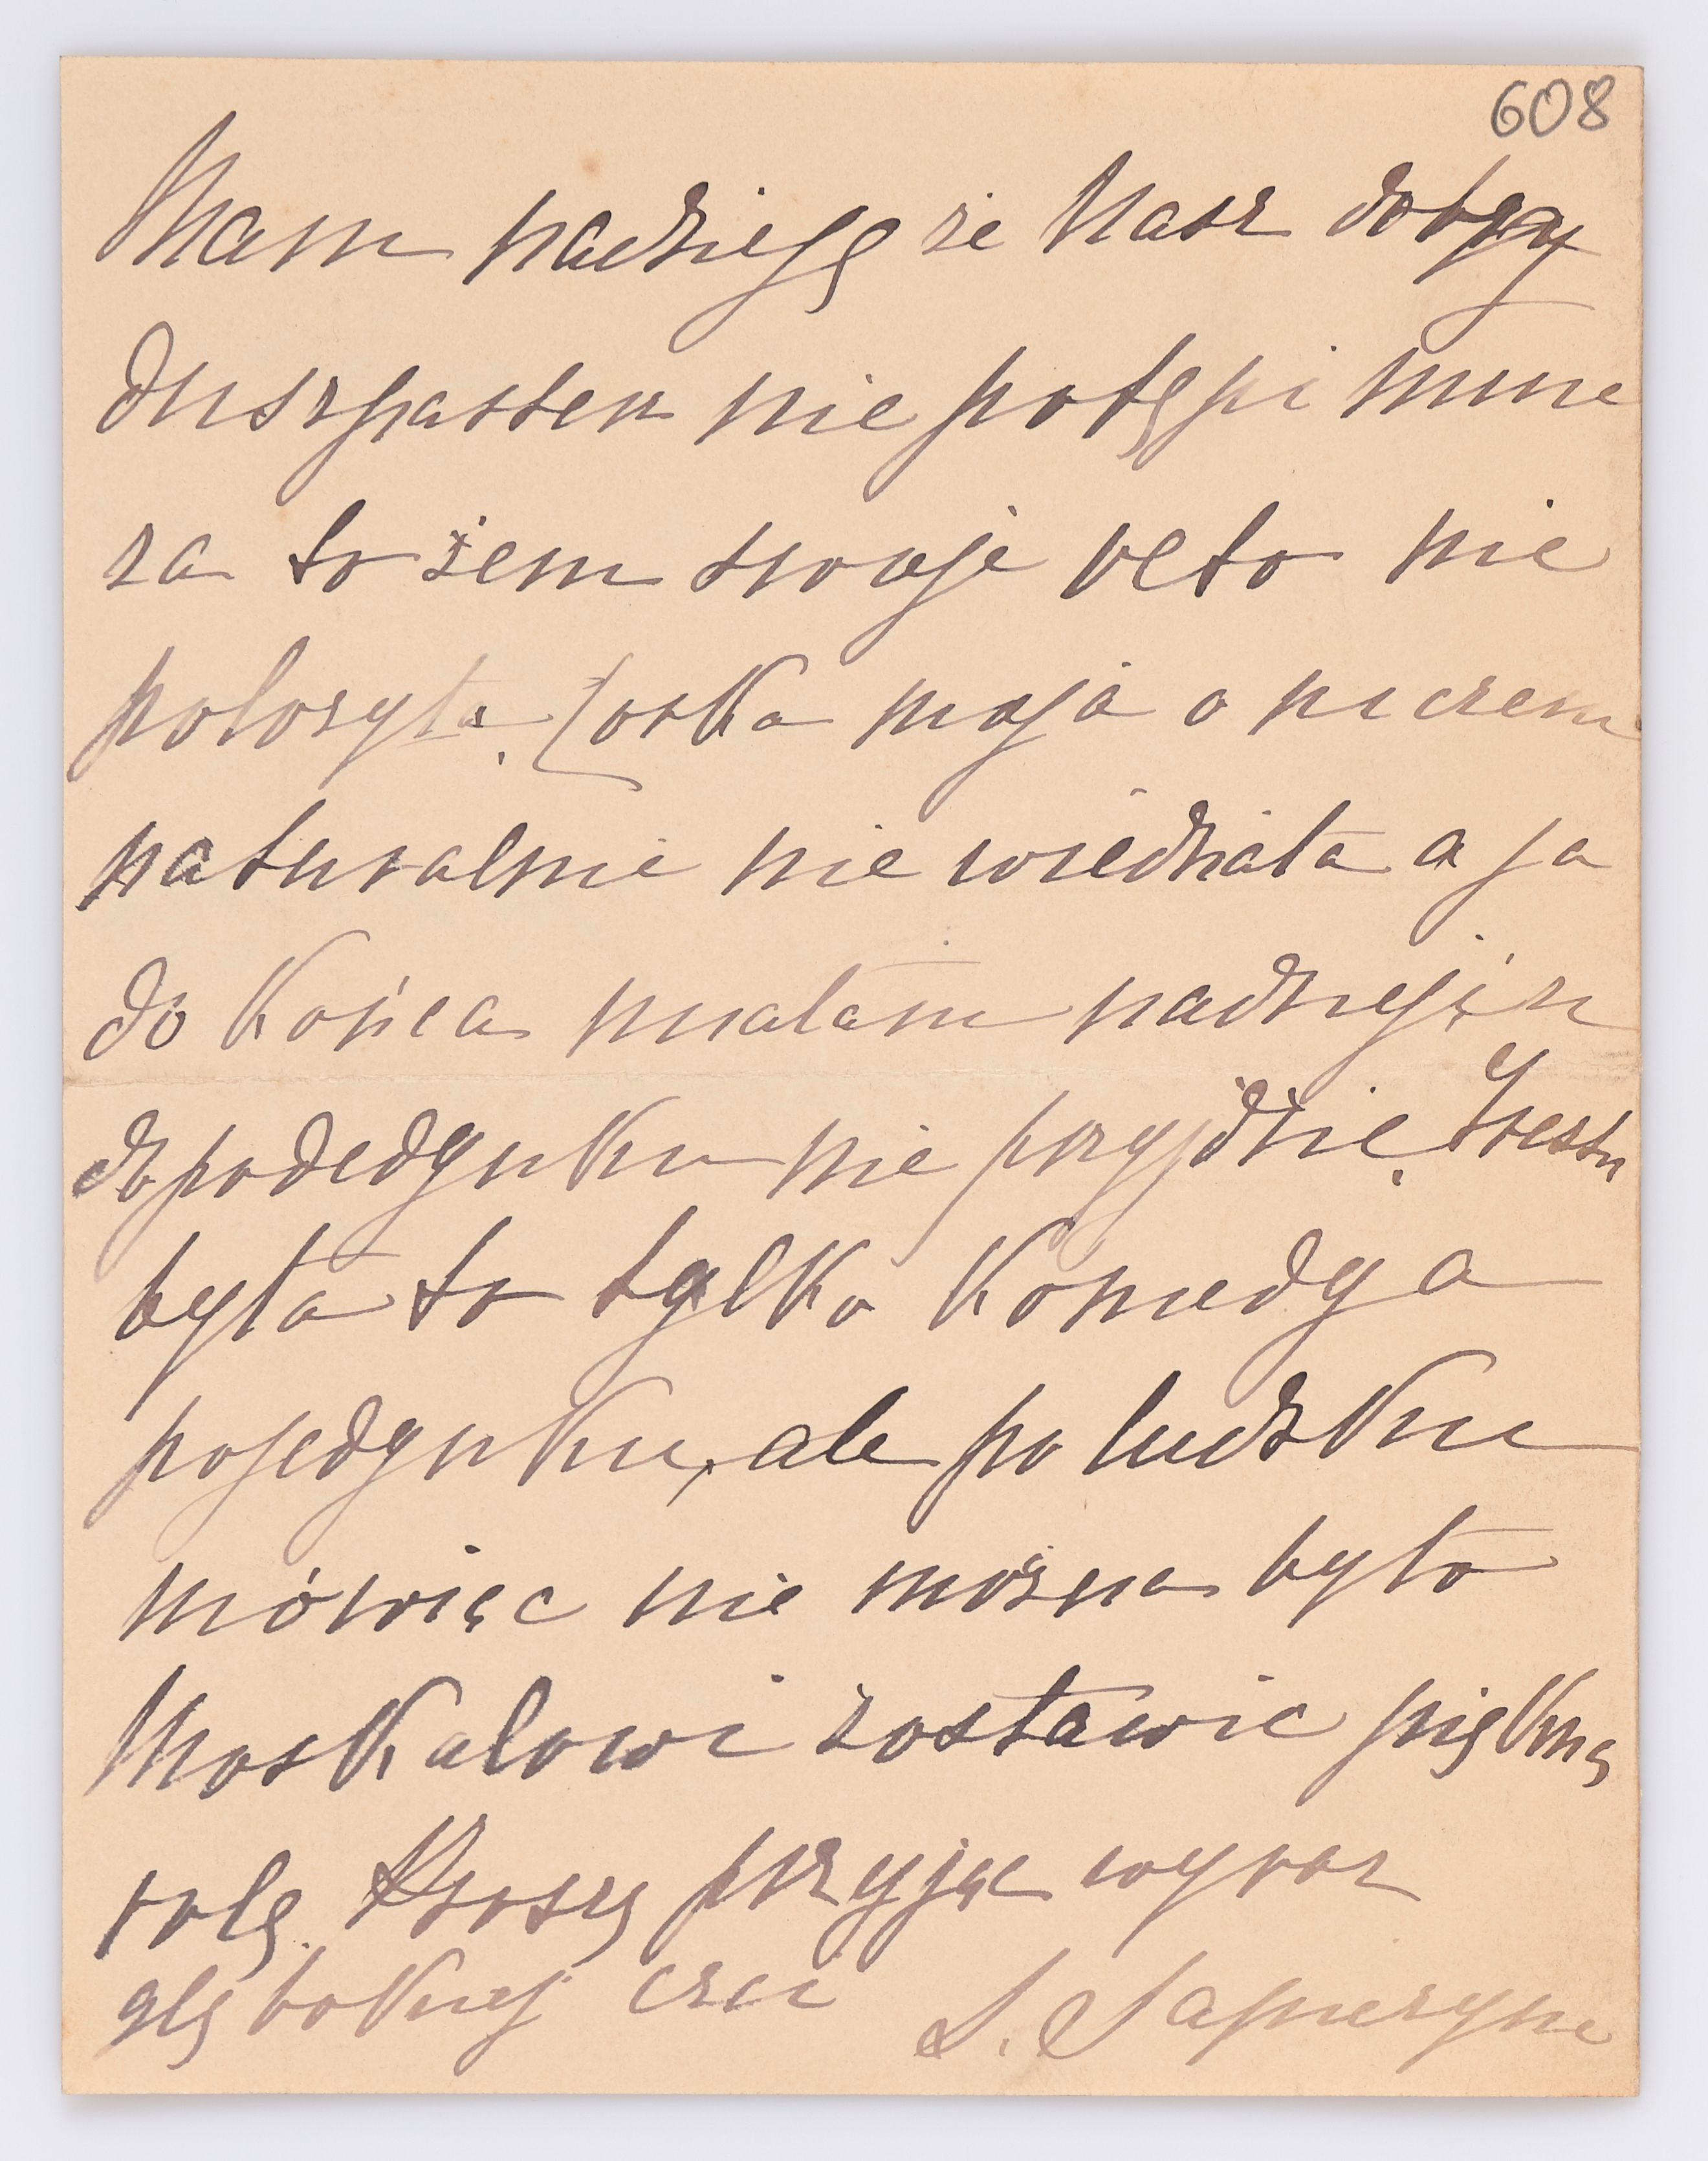 608
Mam nadzieję że Nasz dobry
duszpasterz nie potępi mnie
za to żem swoje veto nie
położyła. Coska moja o niczem
naturalnie nie wiedziała a ja
do końca miałam nadzieję że
do podedynku nie przyjdzie. Zresztą
była to tylko komedya
pojedynku, ale po ludzku
mówiąc nie można było
Moskalowi zostawić piękną
rolę. Proszę przyjąć wyraz
głębokiej czci S. Sapieżyna